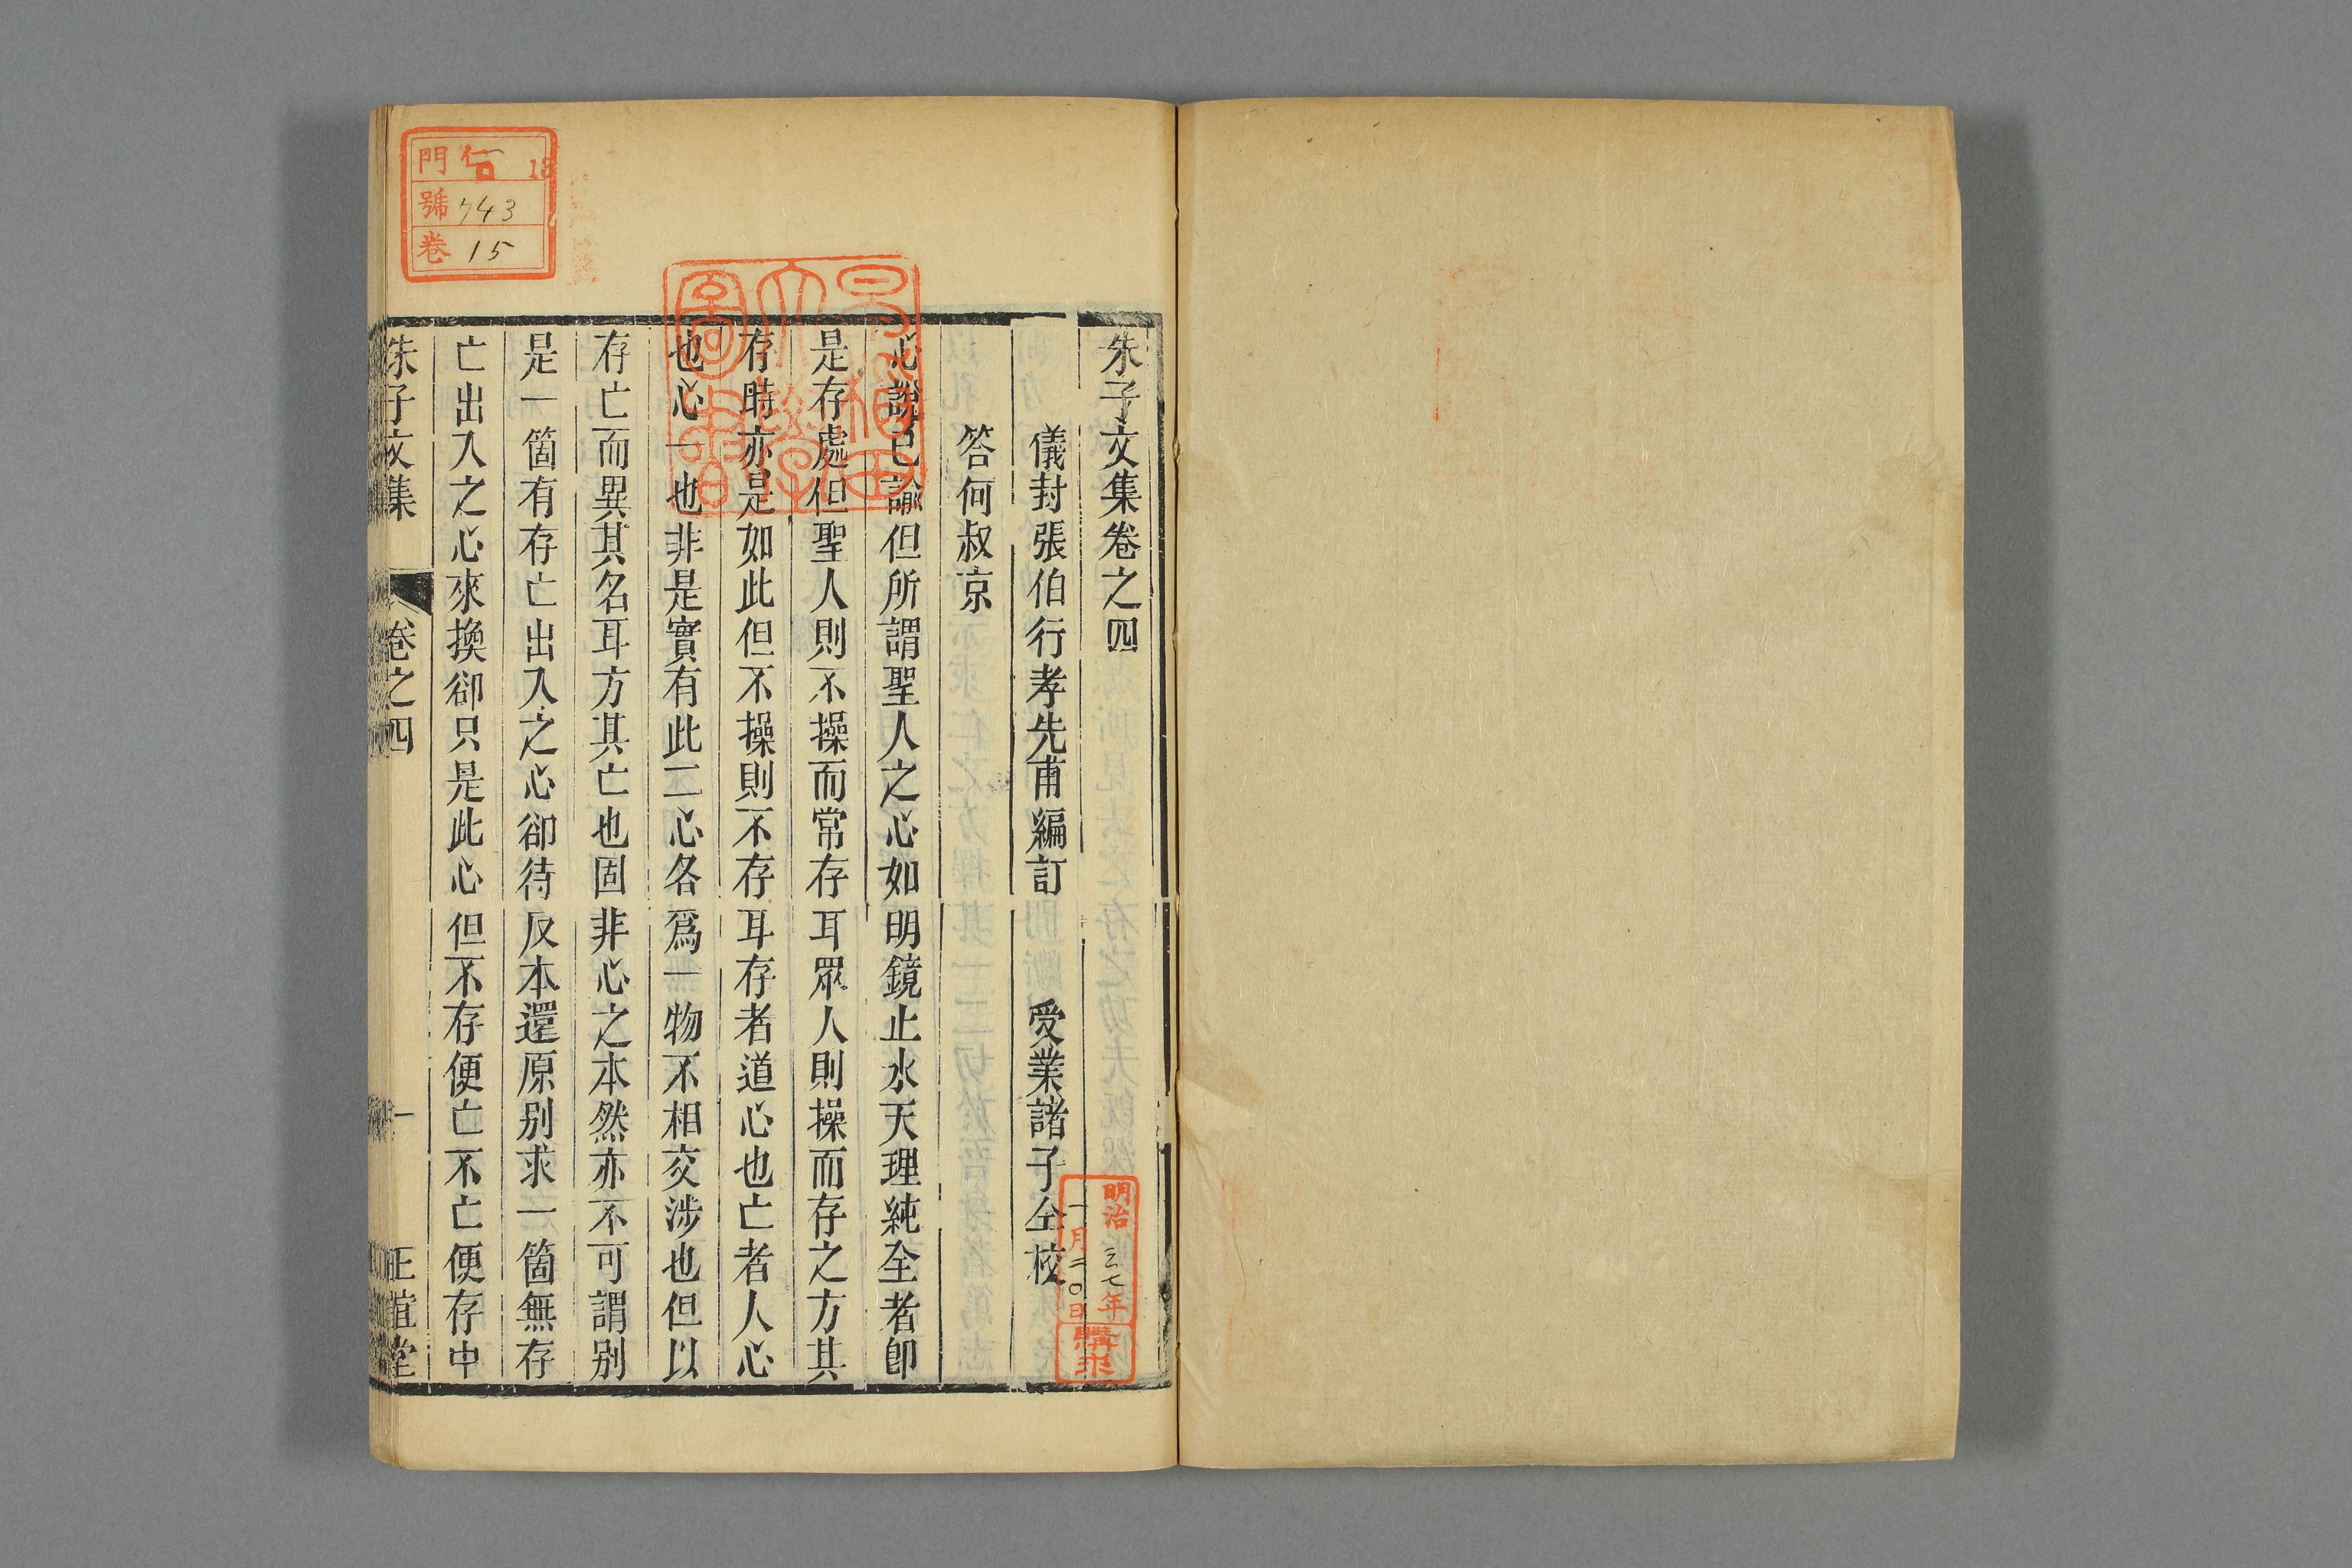 朱子文集卷之四
儀封張伯行孝先甫編訂 受業諸子仝校
答何叔京
心說已諭但所謂聖人之心如明鏡止水天理純全者卽
是存處但聖人則不操而常存耳眾人則操而存之方其
存時亦是如此但不操則不存耳存者道心也亡者人心
也心一也非是實有此二心各爲一物不相交涉也但以
存亡而異其名耳方其亡也固非心之本然亦不可謂别
是一箇有存亡出入之心卻待反本還原别求一箇無存
亡出入之心來換卻只是此心但不存便亡不亡便存中
朱子文集 卷之四 一 正誼堂
早稻田大學圖書
明治三七年
一月二〇日
購求
門 13
號 743
卷 15